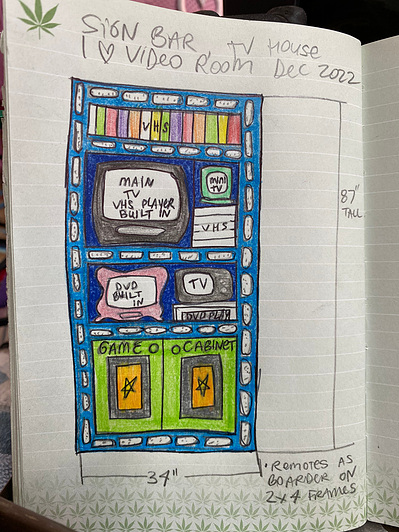 SIGN BAR, TV HOUSE
I ♡ VIDEO ROOM DEC 2022
VHS
MAIN
TV
VHS PLAYER
BUILT IN
MINI
TV
VHS
87"
TALL
DVD
BUILT
IN
TV
DVD PLAY
GAME CABINET
34"
*REMOTES AS
BOARDER ON
2x4 FRAMES